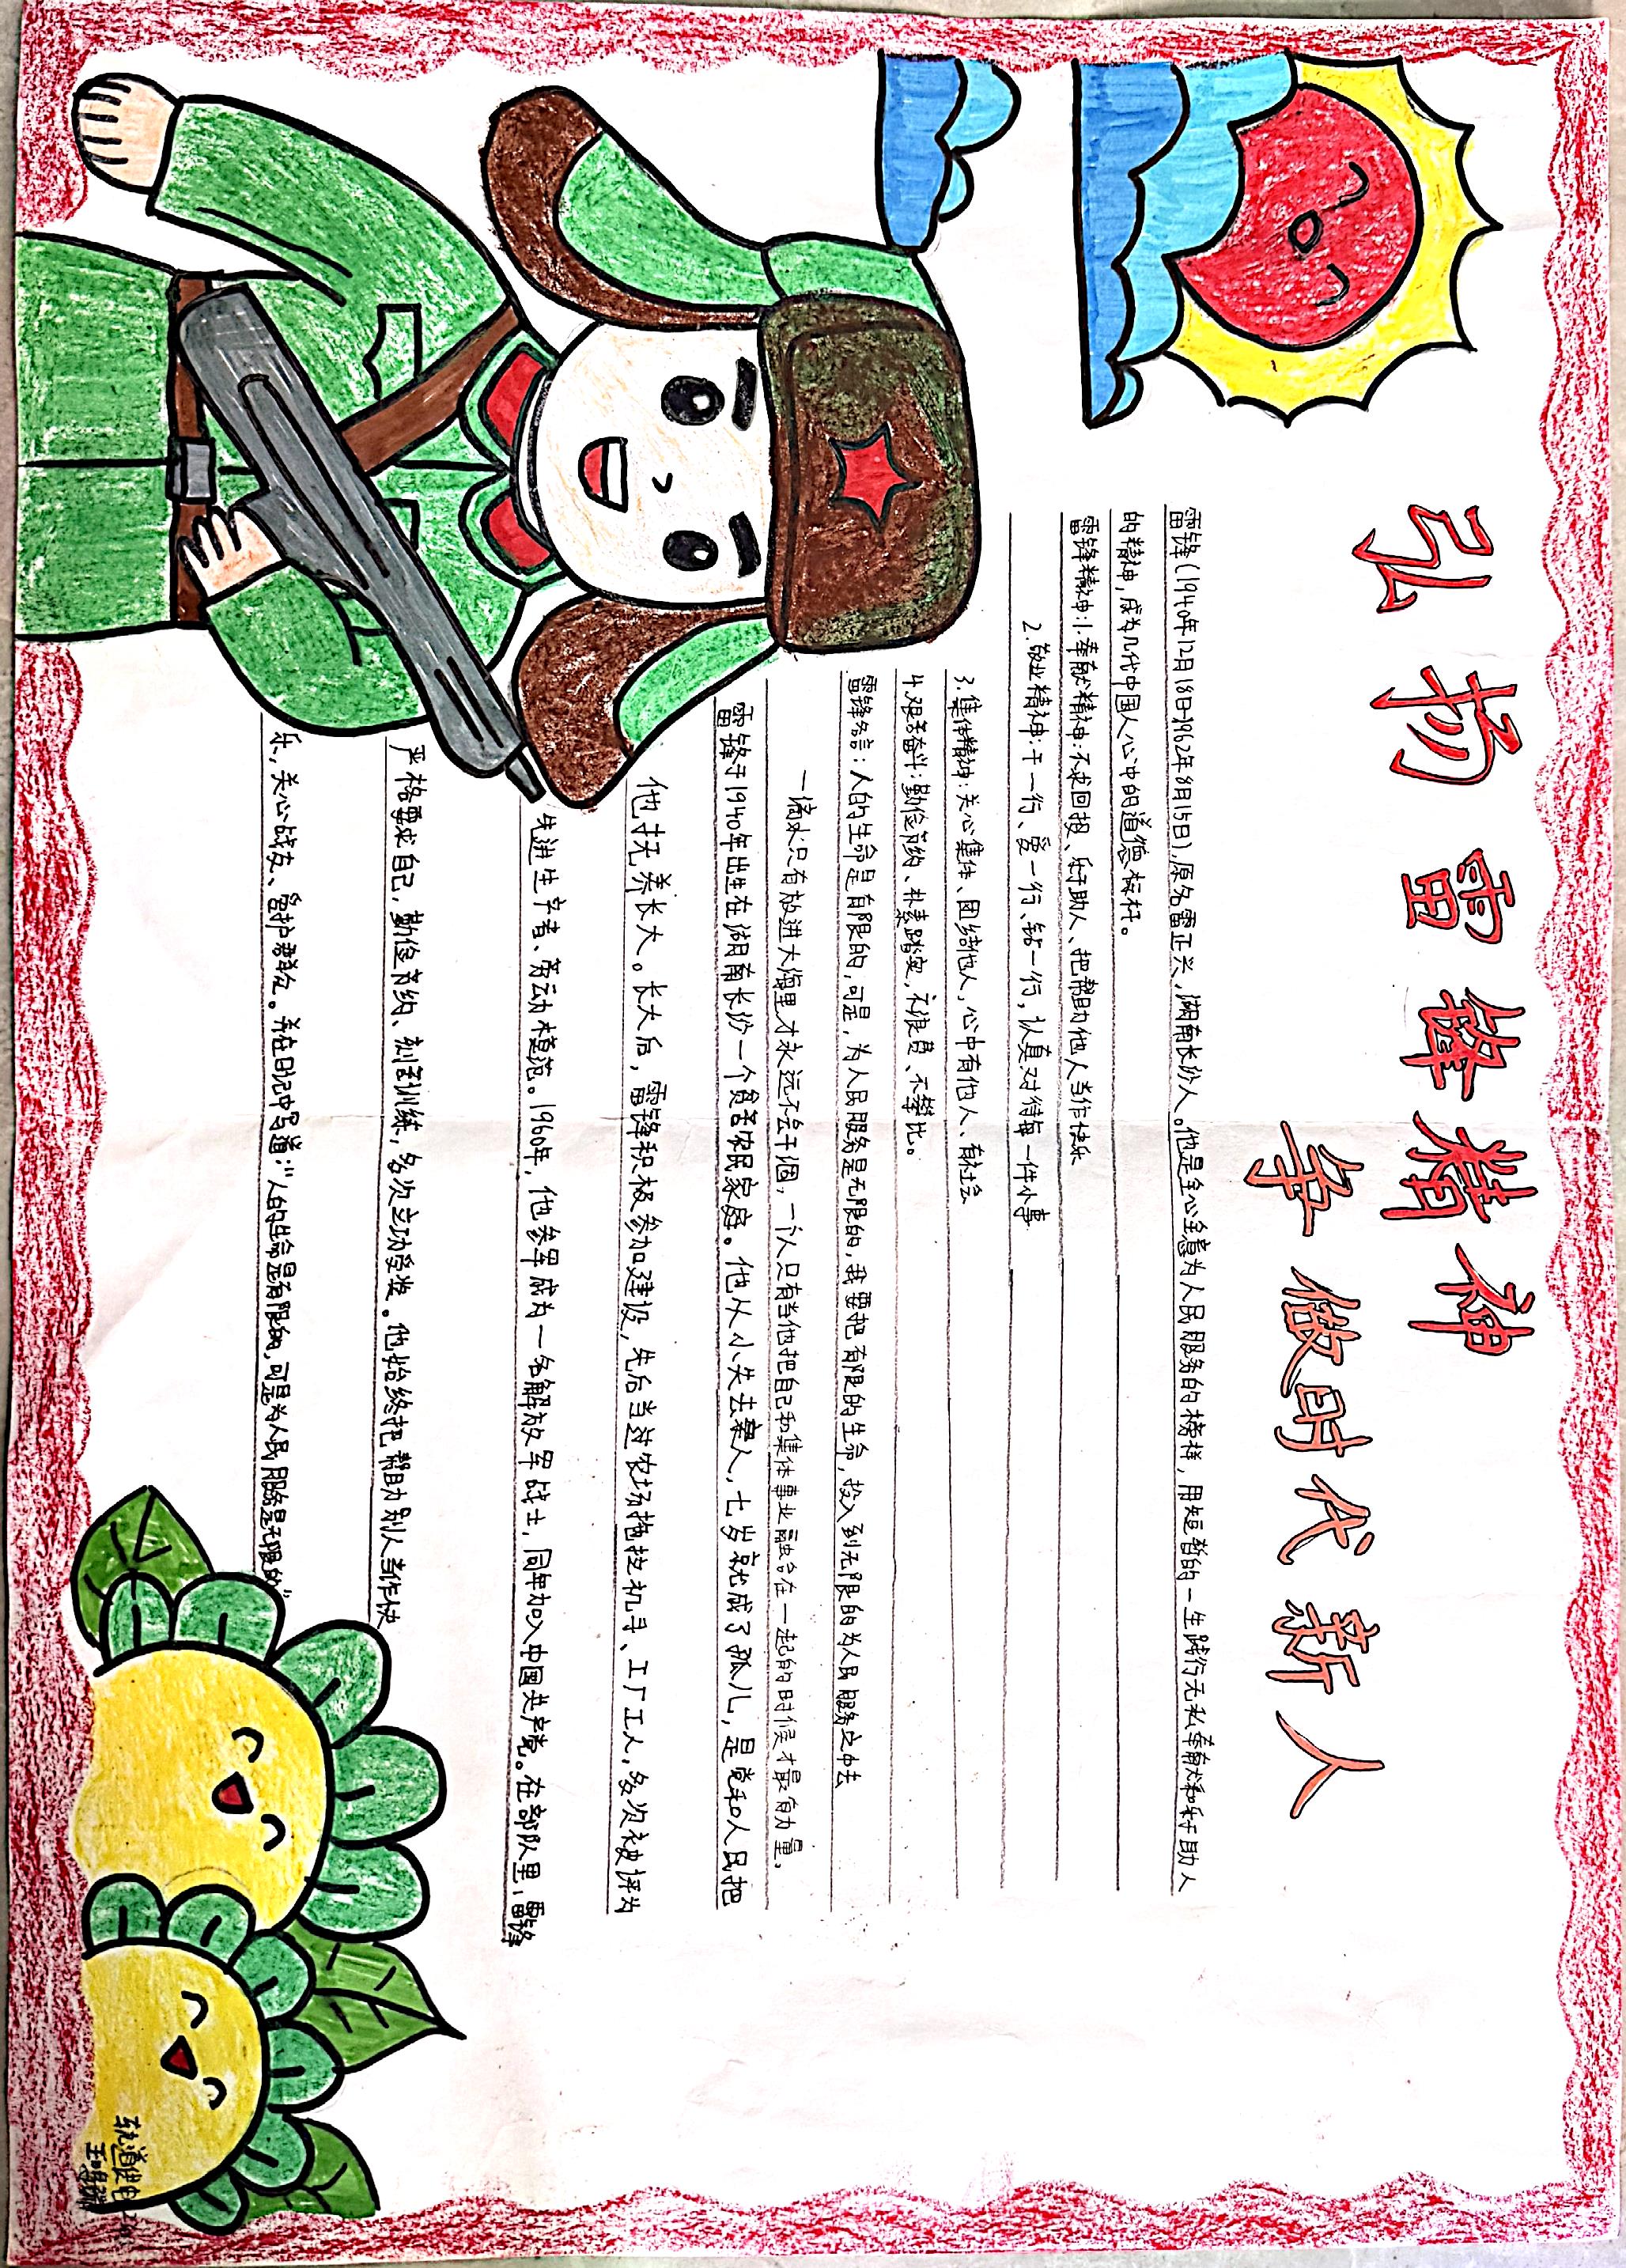 弘扬雷锋精神
争做时代新人
雷锋(1940年12月18日-1962年8月15日),原名雷正兴,湖南长沙人。他是全心全意为人民服务的榜样,用短暂的一生践行无私奉献和乐于助人
的精神,成为几代中国人心中的道德标杆。
雷锋精神:1.奉献精神:不求回报、乐于助人、把帮助他人当作快乐
2.敬业精神:干一行、爱一行、钻一行,认真对待每一件小事
3.集体精神:关心集体、团结他人,心中有他人、有社会
4.艰苦奋斗:勤俭节约、朴素踏实,不浪费、不攀比。
雷锋名言:人的生命是有限的,可是,为人民服务是无限的,我要把有限的生命,投入到无限的为人民服务之中去
一滴水只有放进大海里才永远不会干涸,一个人只有当他把自己和集体事业融合在一起的时候才最有力量。
雷锋于1940年出生在湖南长沙一个贫苦农民家庭。他从小失去亲人,七岁就成了孤儿,是党和人民把
他抚养长大。长大后,雷锋积极参加建设,先后当过农场拖拉机手、工厂工人,多次被评为
先进生产者、劳动模范。1960年,他参军成为一名解放军战士,同年加入中国共产党。在部队里,雷锋
严格要求自己,勤俭节约、刻苦训练,多次立功受奖。他始终把帮助别人当作快
乐,关心战友、爱护群众。并在日记中写道:“人的生命是有限的,可是为人民服务是无限的”
轨道供电